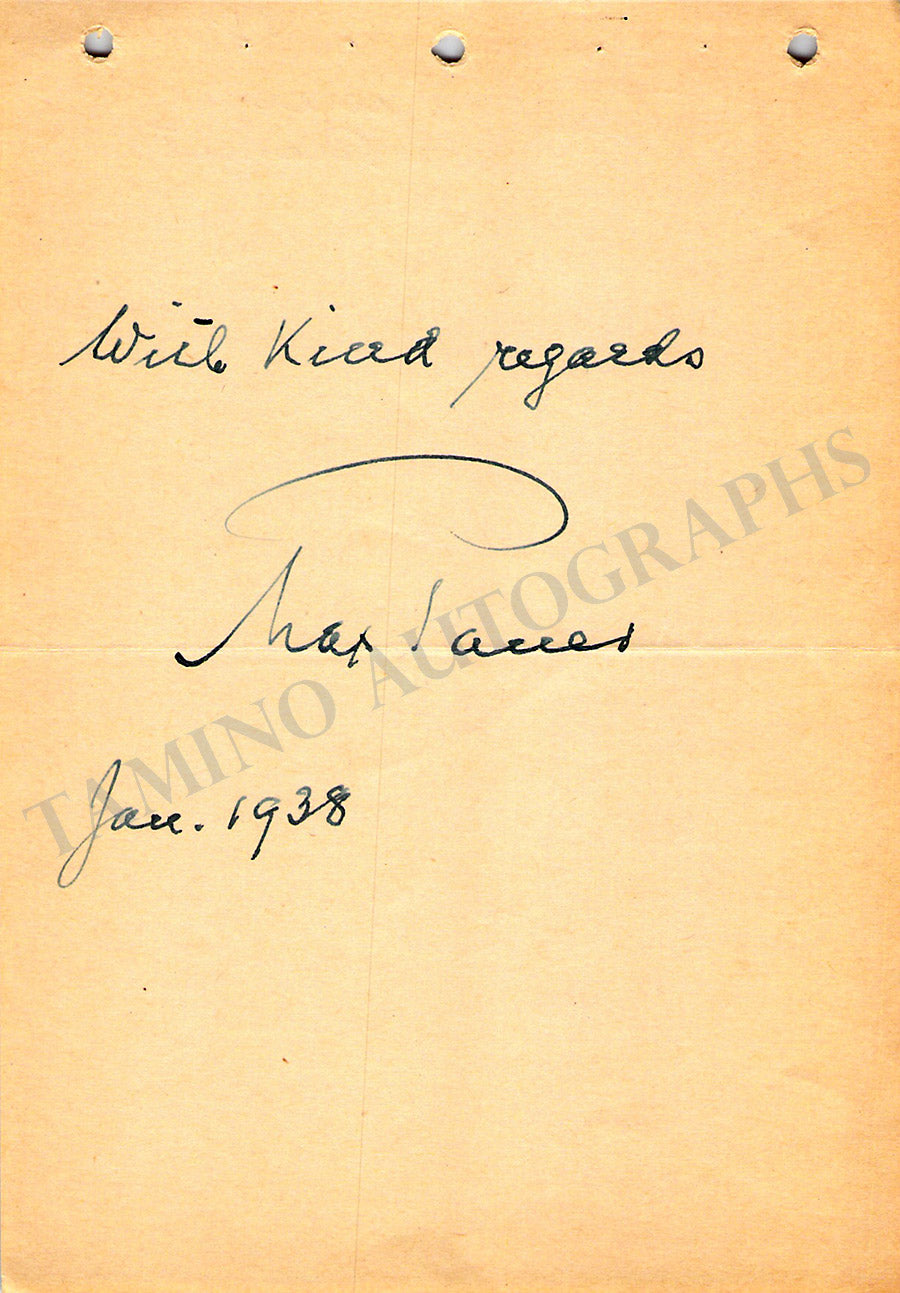 With Kind regards
Max Pauer
Jan. 1938
TAMINO AUTOGRAPHS